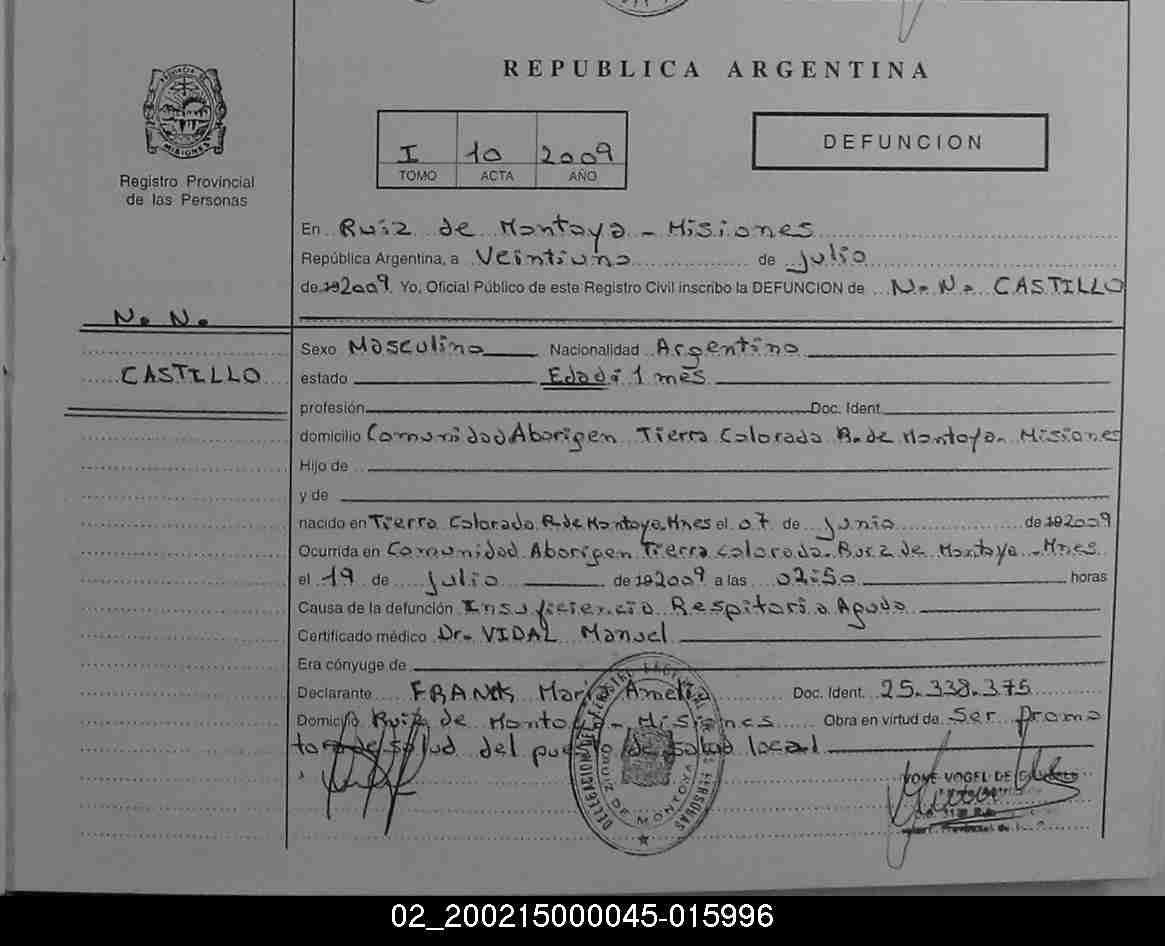 REPUBLICA ARGENTINA
PROVINCIA DE MISIONES
Registro Provincial
de las Personas
I 10 2009
TOMO ACTA AÑO
DEFUNCION
En Ruiz de Montoya - Misiones
República Argentina, a Veintiuno de julio
de 2009. Yo, Oficial Público de este Registro Civil inscribo la DEFUNCION de N. N. CASTILLO
N. N.
CASTILLO
Sexo Masculino Nacionalidad Argentino
estado Edad: 1 mes
profesión Doc. Ident.
domicilio Comunidad Aborigen Tierra Colorada R. de Montoya - Misiones
Hijo de
y de
nacido en Tierra Colorada R. de Montoya, Mnes el 07 de junio de 192009
Ocurrida en Comunidad Aborigen Tierra colorada - Ruiz de Montoya - Mnes.
el 19 de julio de 192009 a las 02:50 horas
Causa de la defunción Insuficiencia Respitoria Aguda
Certificado médico Dr. VIDAL Manuel
Era cónyuge de
Declarante María Amelia Doc. Ident. 25.338.375
Domicilio Ruiz de Montoya - Misiones Obra en virtud de Ser promo
tora de salud del puesto de salud local
DELEGACION DEL REGISTRO PROVINCIAL DE LAS PERSONAS
RUIZ DE MONTOYA
VOGEL DE
02_200215000045-015996